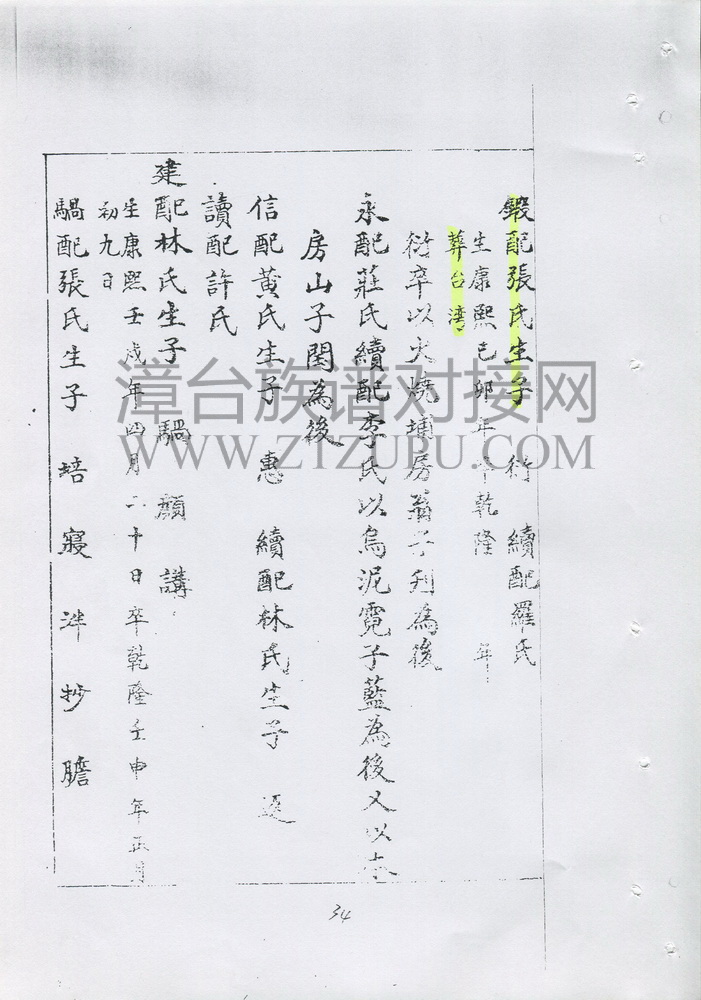 鍛配張氏生子 衍 續配羅氏
生康熙己卯年卒乾隆 年
葬台湾
衍卒以火燒埔房 子列為後
永配莊氏續配李氏以烏泥霓子藍為後又以本
房山子閏為後
信配黃氏生子 惠 續配林氏生子
讀配許氏
建配林氏生子 騧 顏 講
生康熙壬戌年四月二十日卒乾隆壬申年正月
初九日
騧配張氏生子 培 寢 泮 抄 膽
漳台族谱对接网
WWW.ZTZUPU.COM
34